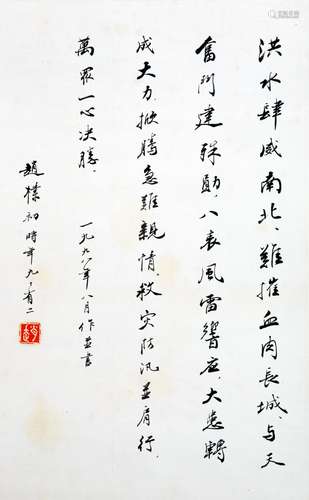 洪水肆威南北、難摧血肉長城、与天
奮鬥建殊勛、八表風雷響应、大患轉
成大力、掀騰急難親情、救灾防汛並肩行、
萬眾一心决勝、
一九九八年八月作並書
趙樸初時年九十有二